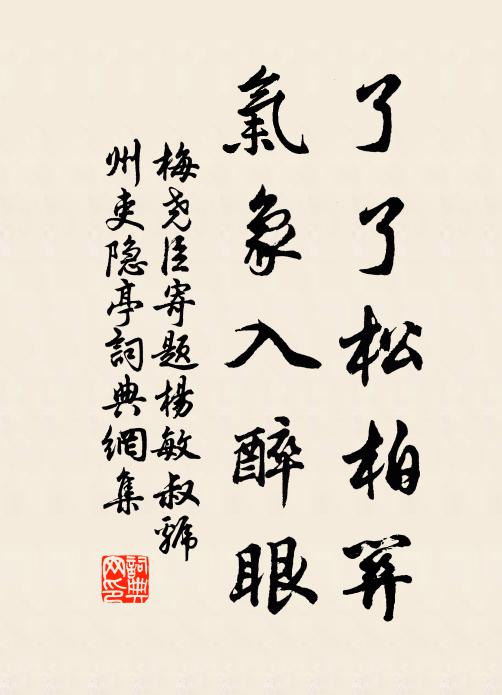 了了松柏
氣象入醉眼
梅尧臣寄題楊敏叔虢
州吏隐亭詞典網集
詞典
网印